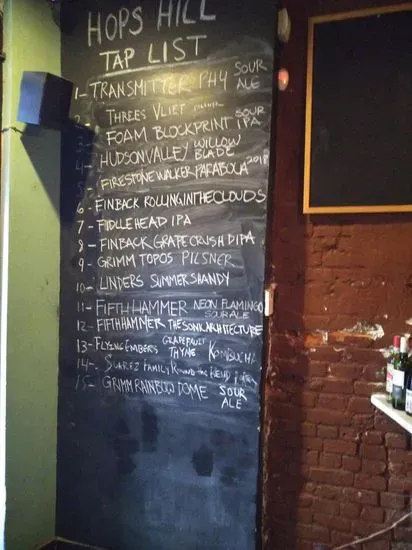 HOPS HILL
TAP LIST
1- TRANSMITTER PH4 SOUR ALE
2- THREES VLIET PILSNER
3- FOAM BLOCKPRINT SOUR IPA
4- HUDSON VALLEY WILLOW BLADE
5- FIRESTONE WALKER PARABOLA 2018
6- FINBACK ROLLING IN THE CLOUDS
7- FIDDLEHEAD IPA
8- FINBACK GRAPE CRUSH DIPA
9- GRIMM TOPOS PILSNER
10- LINDERS SUMMER SHANDY
11- FIFTH HAMMER NEON FLAMINGO SOUR ALE
12- FIFTH HAMMER THE SONIC ARCHITECTURE
13- FLYING EMBERS GRAPEFRUIT THYME KOMBUCHA
14- SUAREZ FAMILY ROUND THE BEND
15- GRIMM RAINBOW DOME SOUR ALE